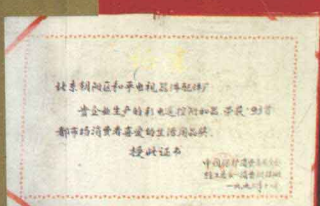 北京朝阳区和平电视器件配件厂
贵企业生产的彩电遥控附加品,荣获'93首
都市场消费者喜爱的生活用品奖。
授此证书
中国保护消费者
一九九三